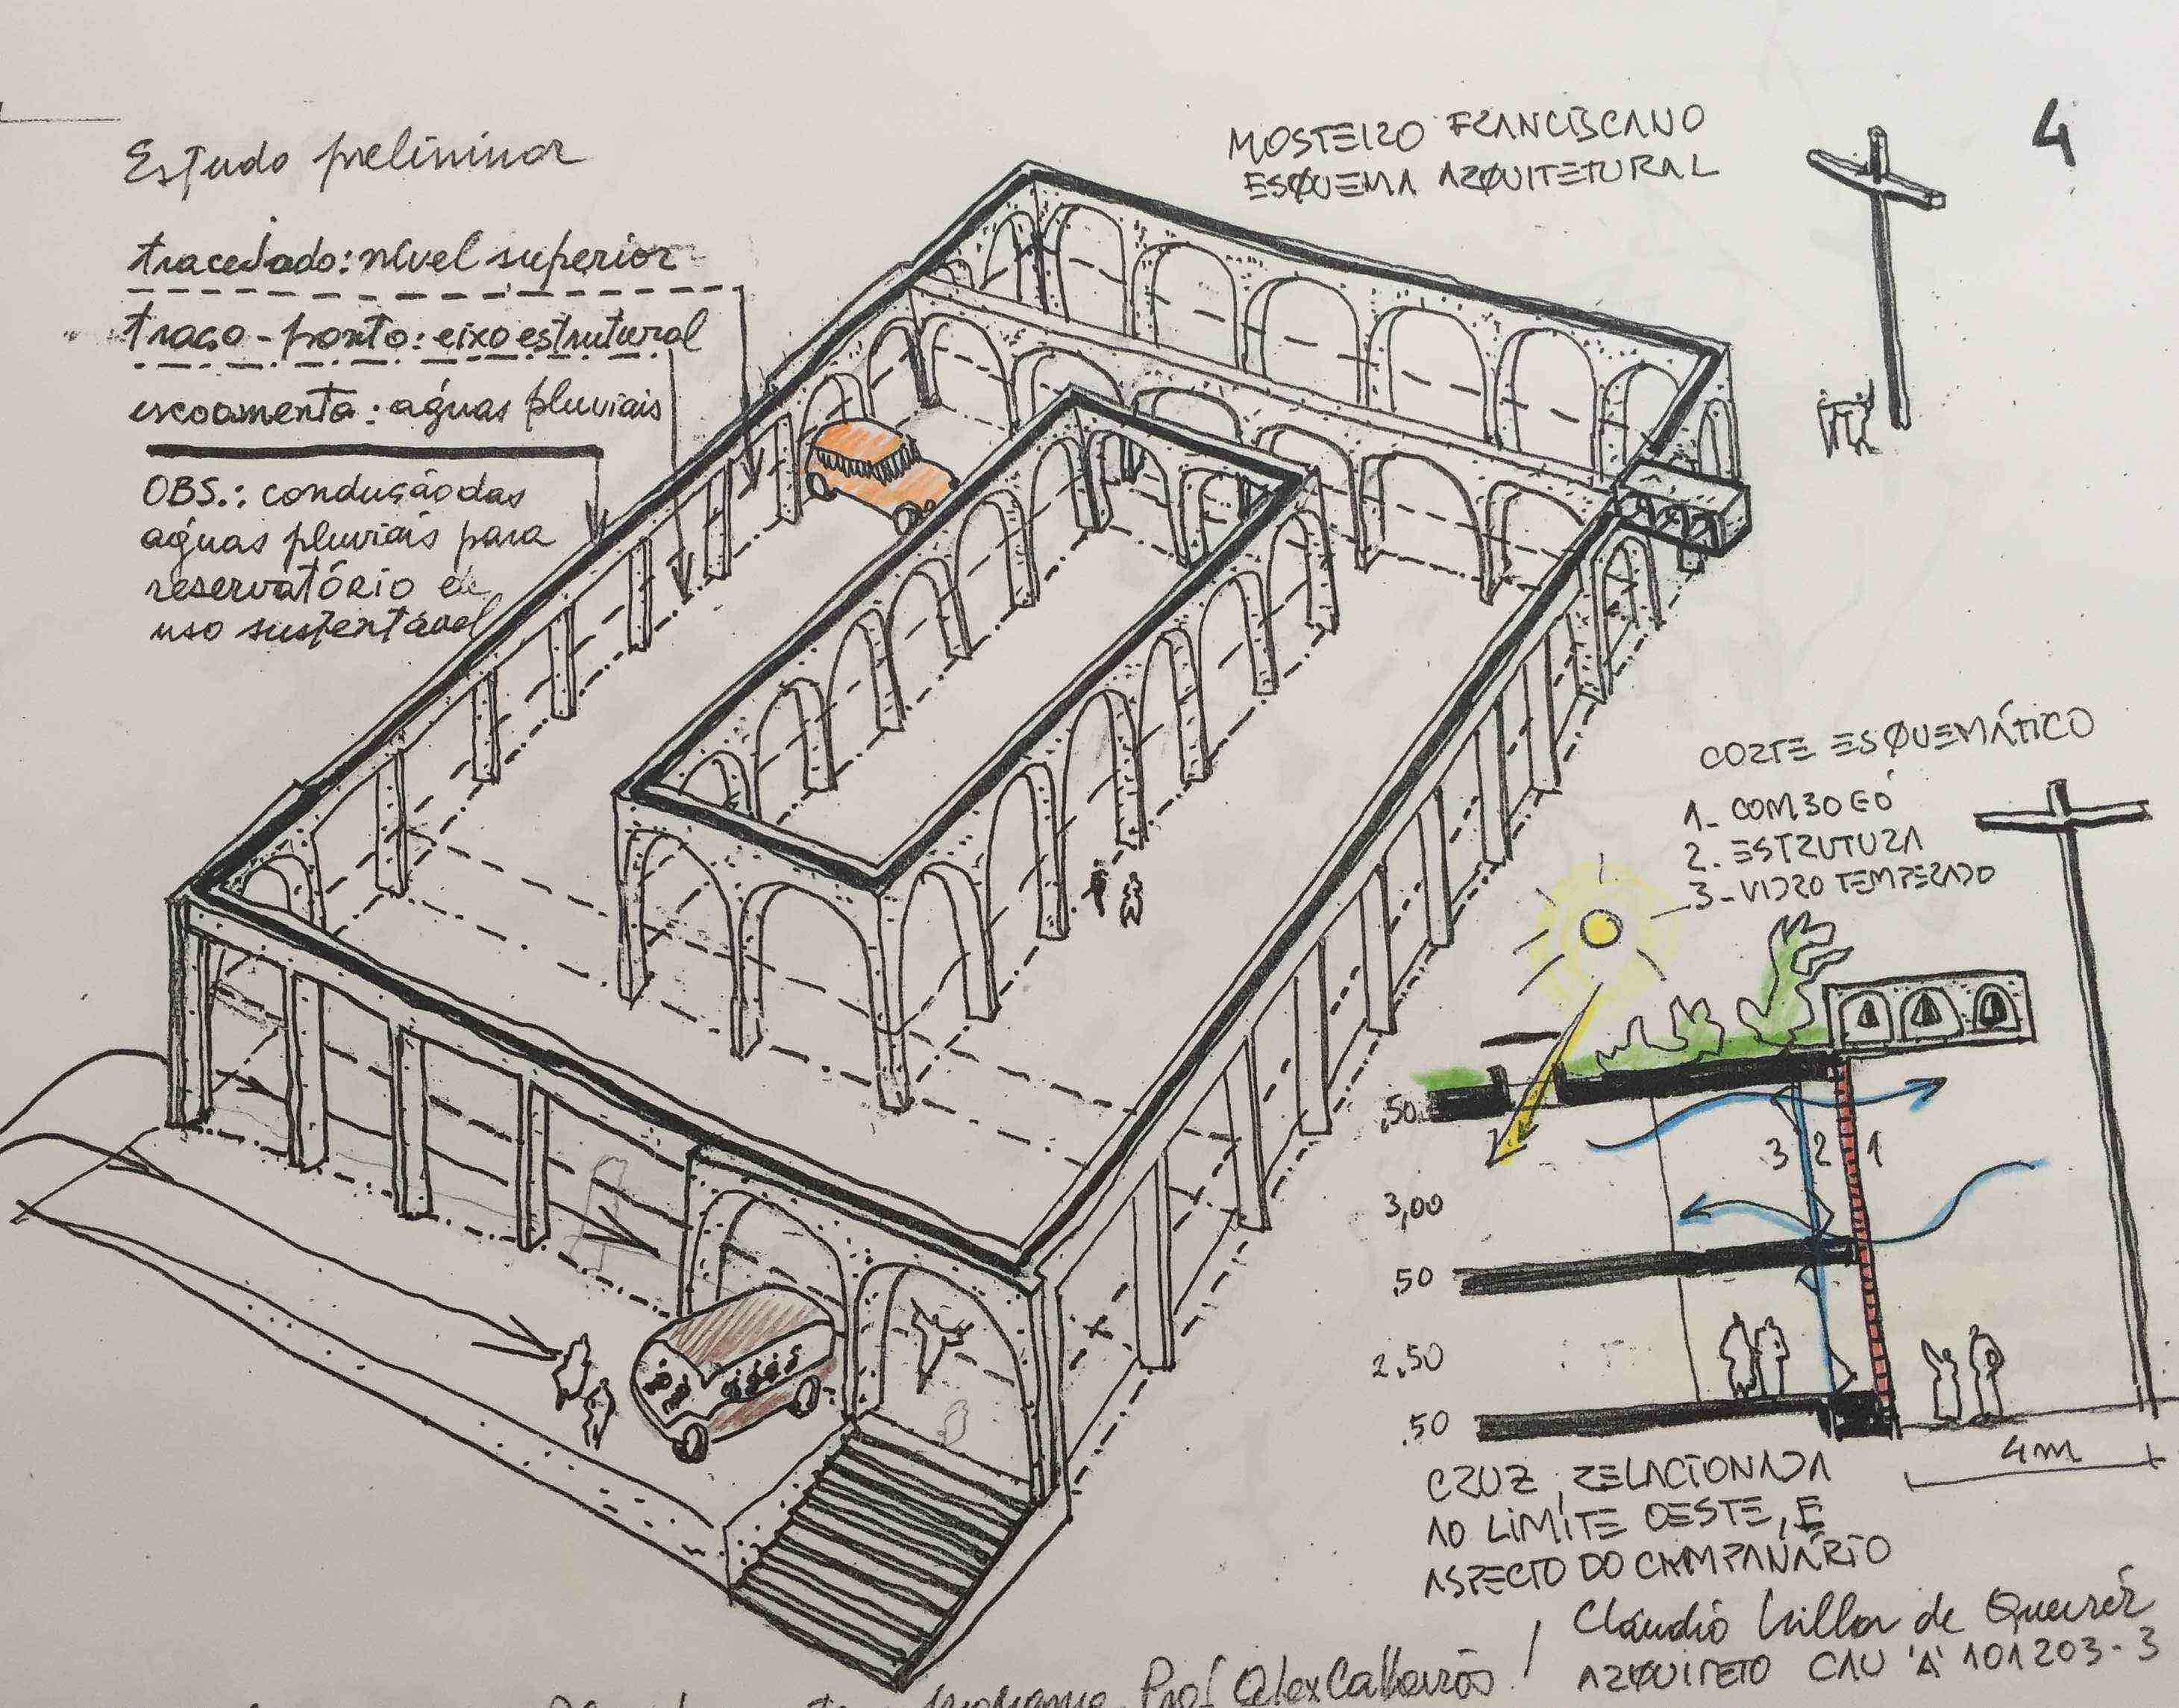 Estudo preliminar
tracejado: nível superior
traço-ponto: eixo estrutural
escoamento: águas pluviais
OBS.: condução das
águas pluviais para
reservatório de
uso sustentável
MOSTEIRO FRANCISCANO
ESQUEMA ARQUITETURAL
4
CORTE ESQUEMÁTICO
1- COMBOGÓ
2. ESTRUTURA
3- VIDRO TEMPERADO
.50
3 2 1
3,00
.50
2.50
.50
4m
CRUZ, RELACIONADA
AO LIMÍTE OESTE, E
ASPECTO DO CAMPANÁRIO
Cláudio de Queiroz
ARQUITETO CAU 'A' 101203-3
Prof. Alex !